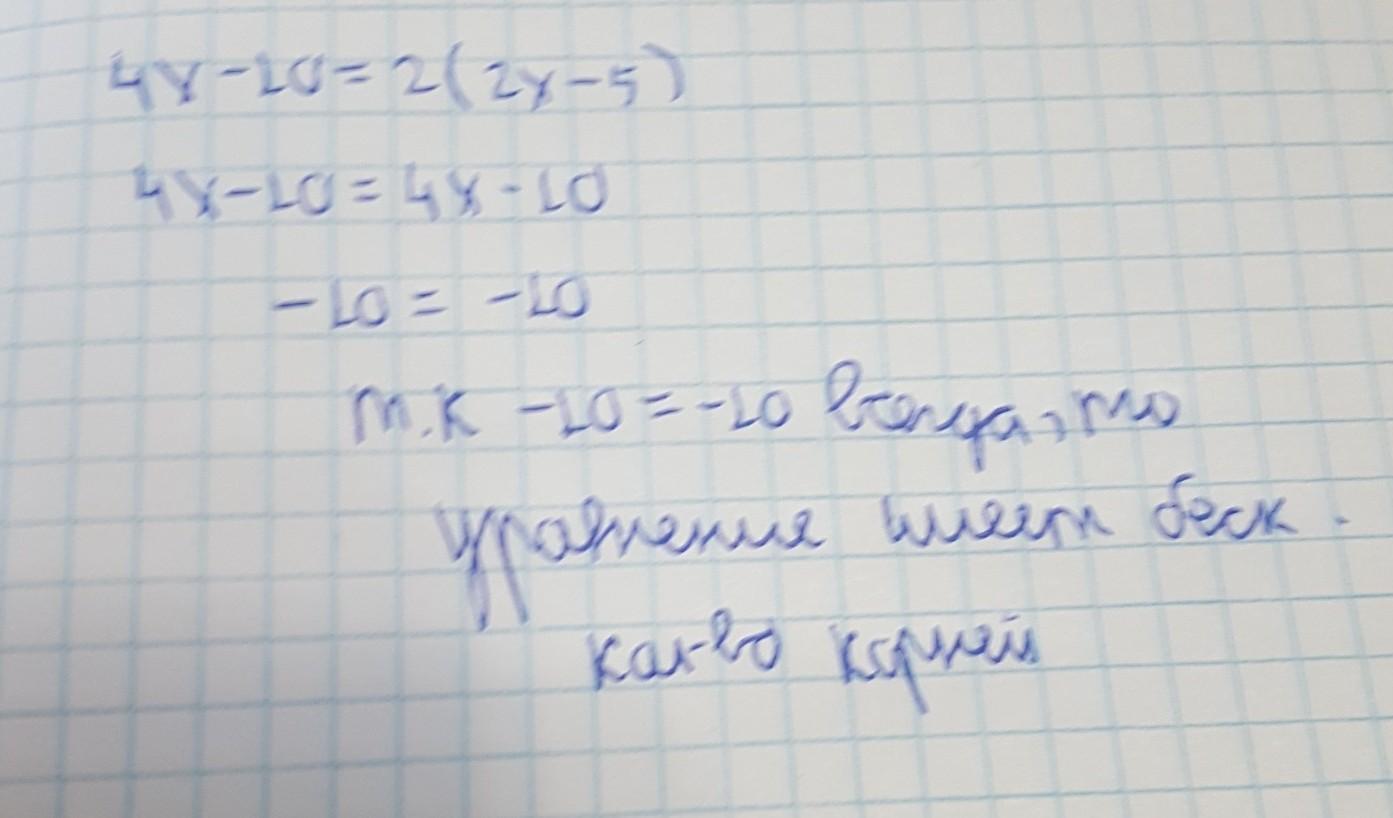 4x-10=2(2x-5)
4x-10=4x-10
-10=-10
т.к -10=-10 всегда, то
уравнение имеет беск.
кол-во корней